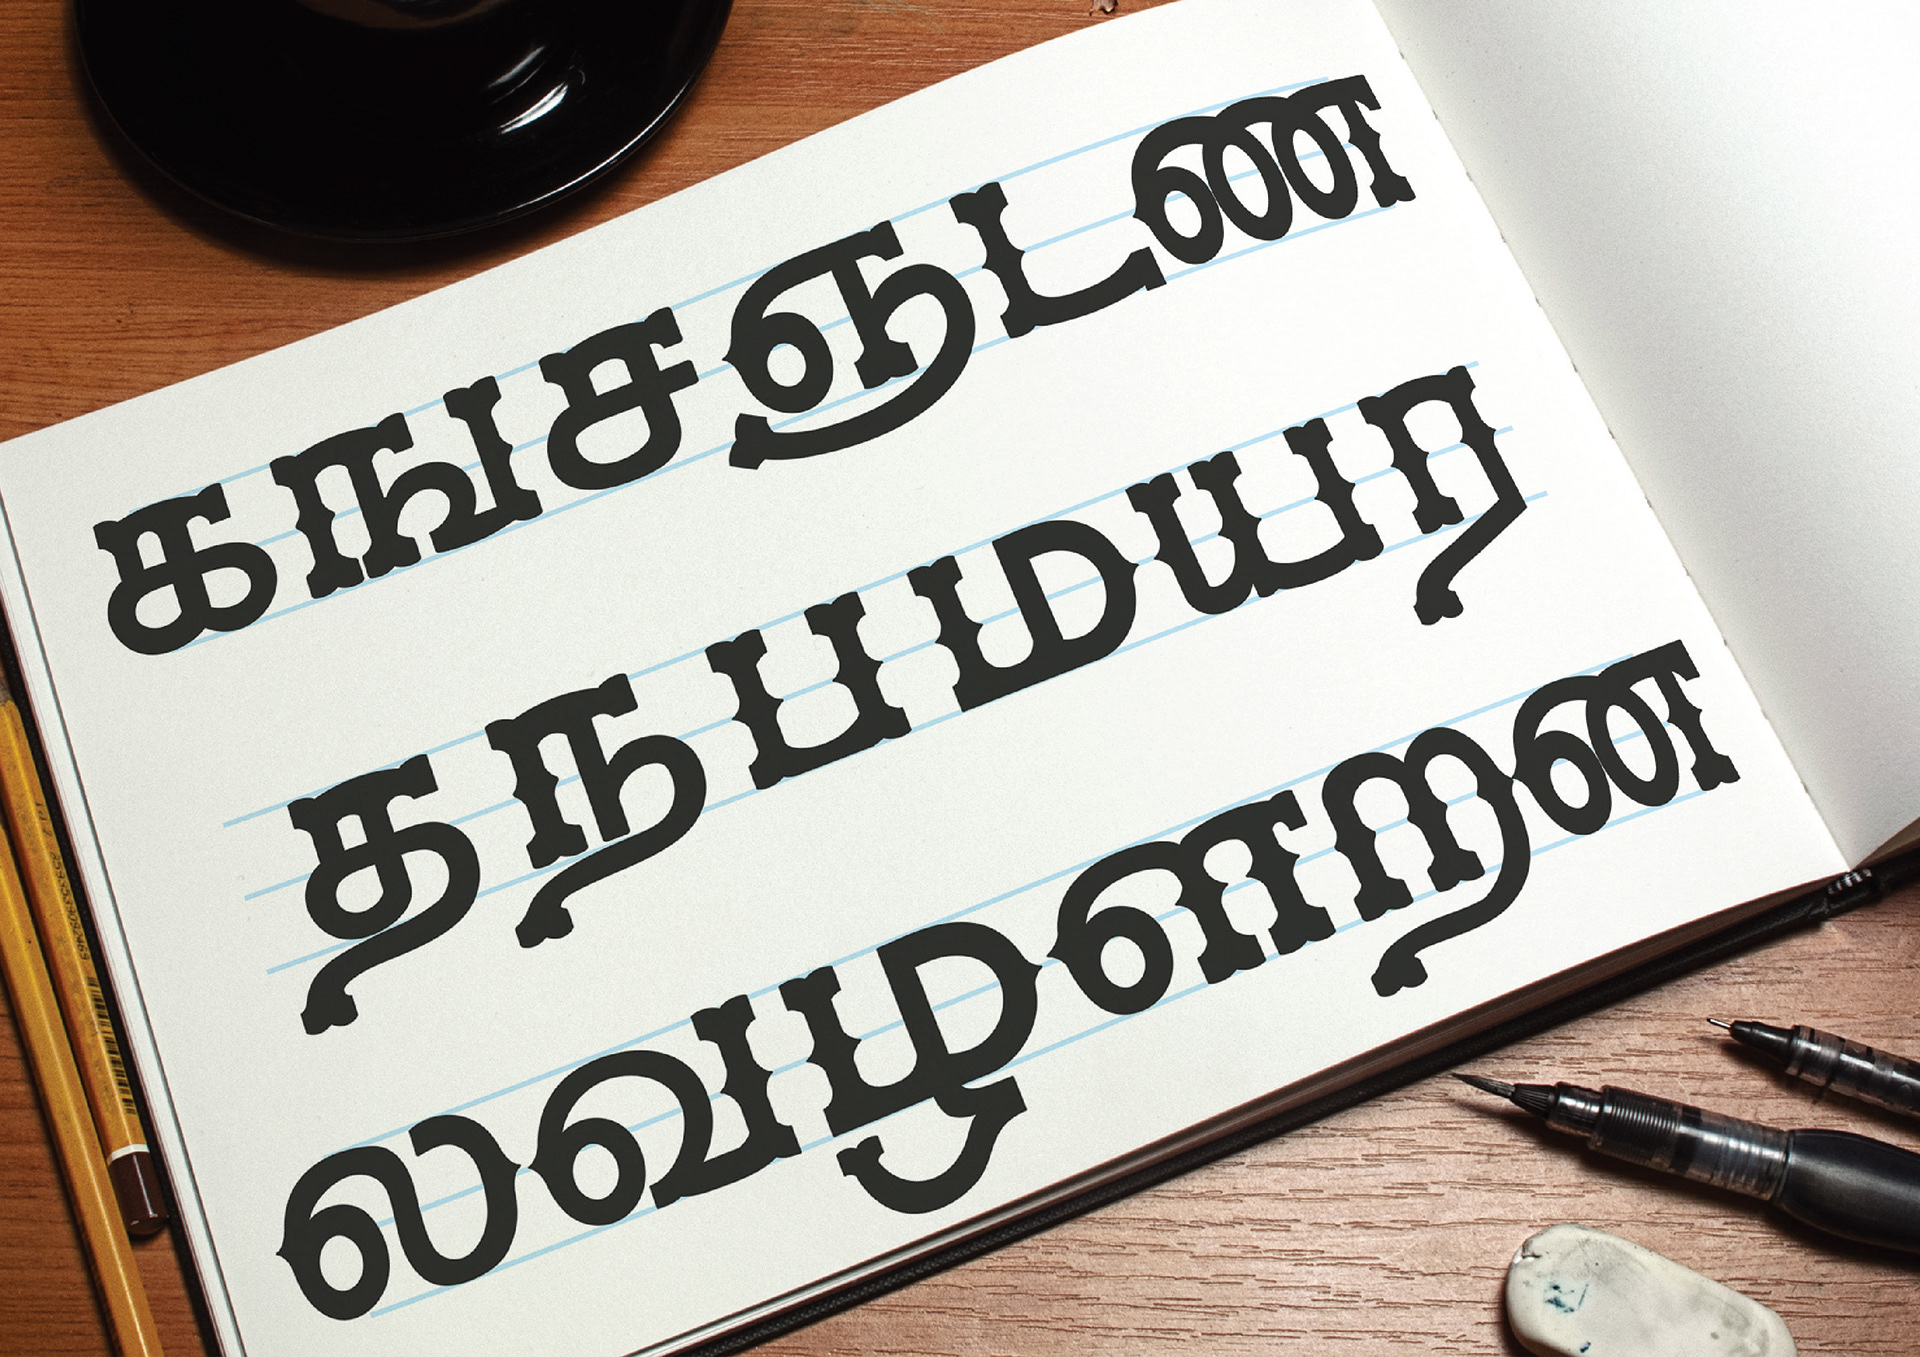 கஙசஞடண
தநபமயர
லவழளறன